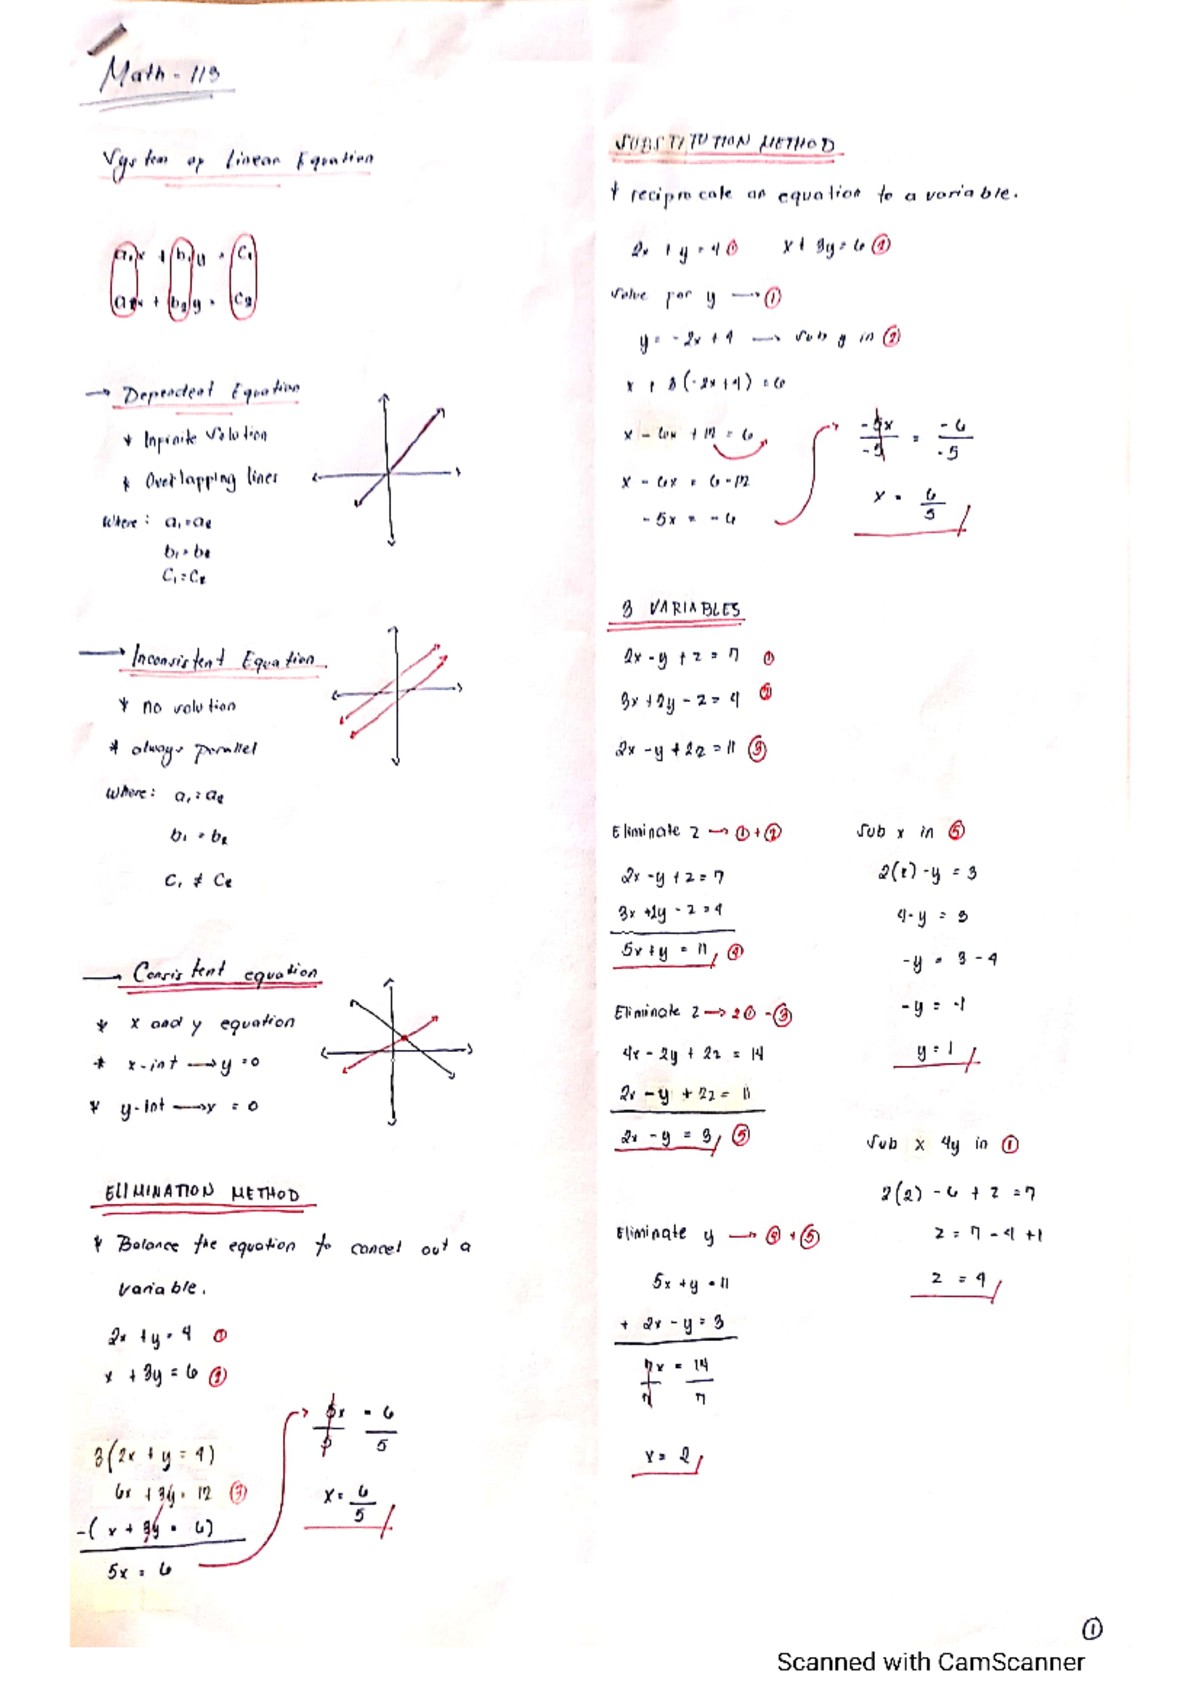 Math - 113
System of Linear Equation
a₁x + b₁y = C₁
a₂x + b₂y = C₂
→ Dependent Equation
* Infinite Solution
* Overlapping lines
Where: a₁ = a₂
b₁ = b₂
C₁ = C₂
→ Inconsistent Equation
* no solution
* always parallel
Where: a₁ = a₂
b₁ = b₂
C₁ ≠ C₂
→ Consistent equation
* x and y equation
* x-int → y = 0
* y-int → x = 0
ELIMINATION METHOD
* Balance the equation to cancel out a
variable.
2x + y = 4 ①
x + 3y = 6 ②
3(2x + y = 4)
6x + 3y = 12 ③
-( x + 3y = 6)
5x = 6
5x = 6
5 5
x = 6
5
SUBSTITUTION METHOD
* reciprocate an equation to a variable.
2x + y = 4 ① x + 3y = 6 ②
Solve for y → ①
y = -2x + 4 → Sub y in ②
x + 3(-2x + 4) = 6
x - 6x + 12 = 6
x - 6x = 6 - 12
-5x = -6
-5x = -6
-5 -5
x = 6
5
3 VARIABLES
2x - y + z = 7 ①
3x + 2y - z = 4 ②
2x - y + 2z = 11 ③
Eliminate z → ① + ②
2x - y + z = 7
3x + 2y - z = 4
5x + y = 11 ④
Eliminate z → 2① - ③
4x - 2y + 2z = 14
2x - y + 2z = 11
2x - y = 3 ⑤
Eliminate y → ④ + ⑤
5x + y = 11
+ 2x - y = 3
7x = 14
7 7
x = 2
Sub x in ⑤
2(2) - y = 3
4 - y = 3
-y = 3 - 4
-y = -1
y = 1
Sub x 4y in ①
2(2) - 6 + z = 7
z = 7 - 4 + 1
z = 4
①
Scanned with CamScanner